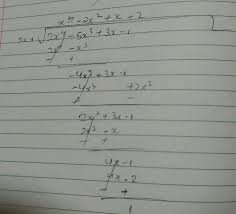 x³ - 2x² + x + 2
2x-1 √ 2x⁴ - 5x³ + 3x - 1
2x⁴ - x³
- +
-4x³ + 3x - 1
-4x³ + 2x²
+ -
2x² + 3x - 1
2x² - x
- +
4x - 1
4x - 2
- +
1